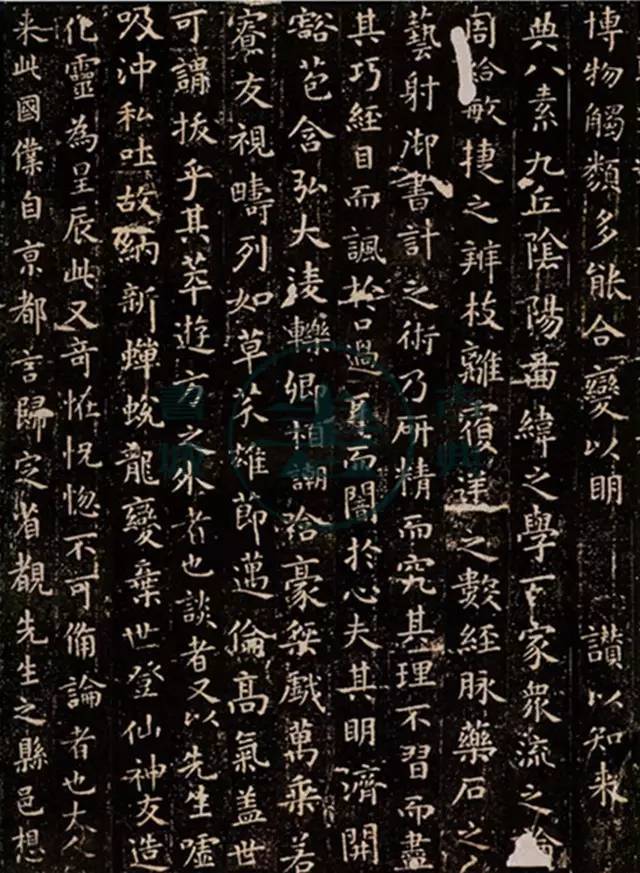 博物觸類多能合變以明 讚以知来
典八素九丘陰陽圖緯之學百家衆流之論
周給敏捷之辨枝離覆逆之數經脉藥石之
藝射御書計之術乃研精而究其理不習而盡
其巧經目而諷於口過耳而闇於心夫其明濟開
豁苞含弘大淩轢卿相謿哈豪桀戲萬乘若
寮友視疇列如草芥雄節邁倫高氣盖世
可謂拔乎其萃遊方之外者也談者又以先生噓
吸沖和吐故納新蟬蛻龍變棄世登仙神友造
化靈為星辰此又奇怪怳惚不可備論者也大人
来此國僕自京都言歸定省覩先生之縣邑想